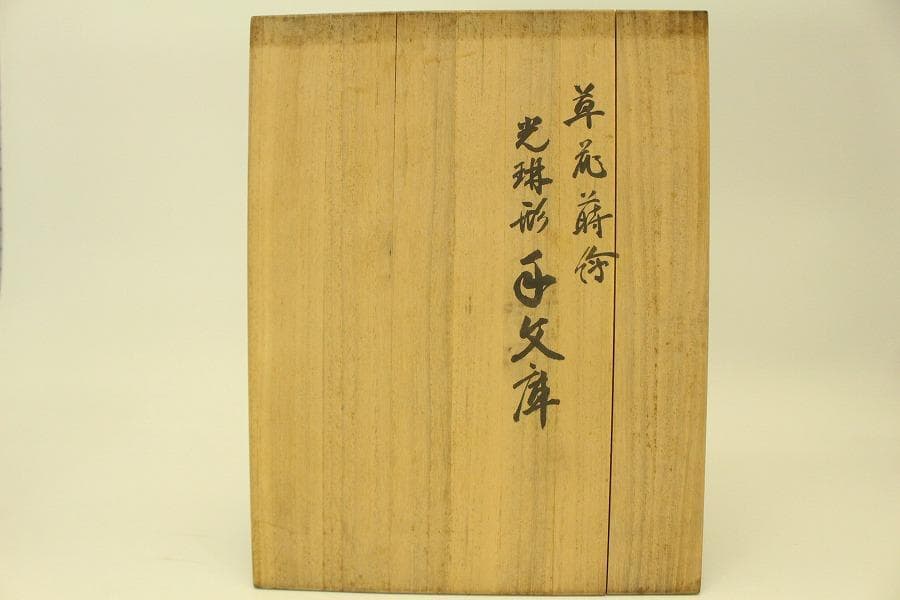 草花蒔絵
光琳形手文庫